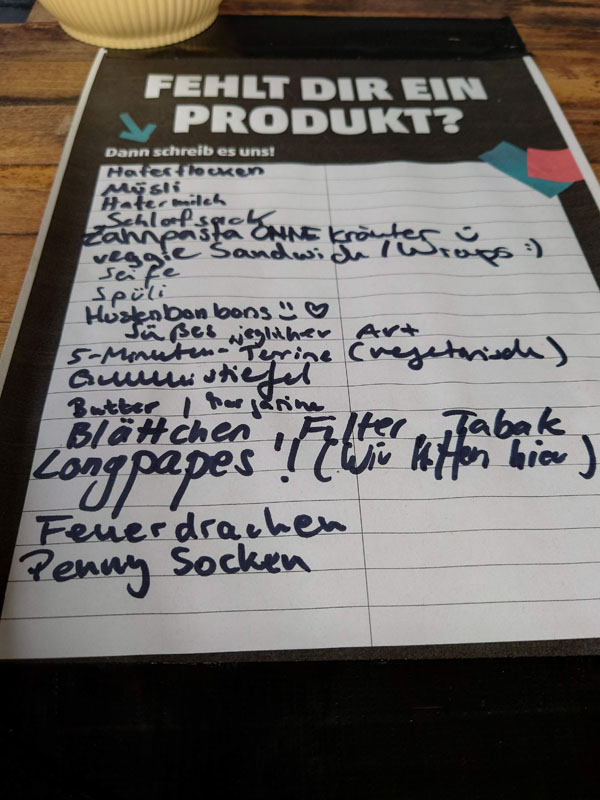 FEHLT DIR EIN
PRODUKT?
Dann schreib es uns!
Haferflocken
Müsli
Hafermilch
Schlafsack
Zahnpasta OHNE Kräuter
veggie Sandwich / Wraps :)
Seife
Spüli
Hustenbonbons
Süßes jeglicher Art
5-Minuten-Terrine (vegetarisch)
Gummistiefel
Butter / Margarine
Blättchen, Filter Tabak
Longpapes !! (Wir hier)
Feuerdrachen
Penny Socken